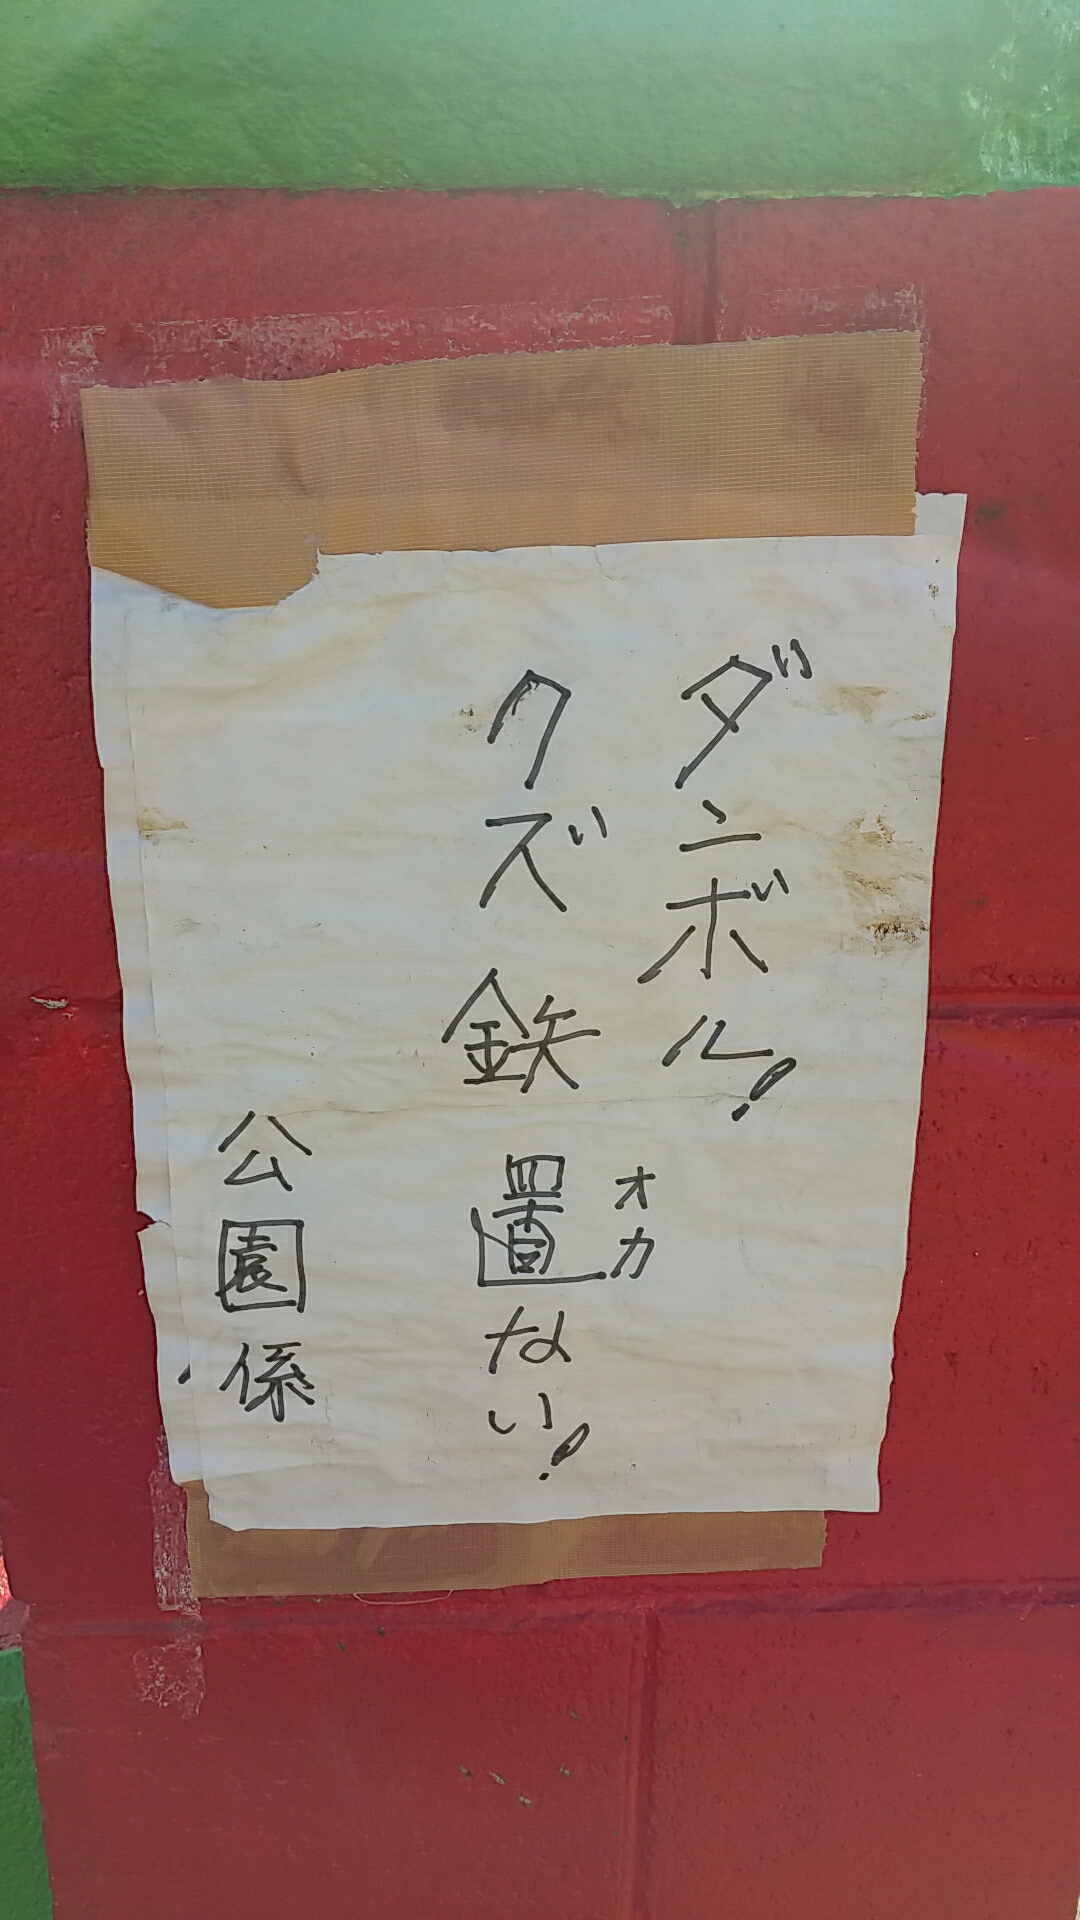 ダンボル!
クズ鉄置ない!
オカ
公園係